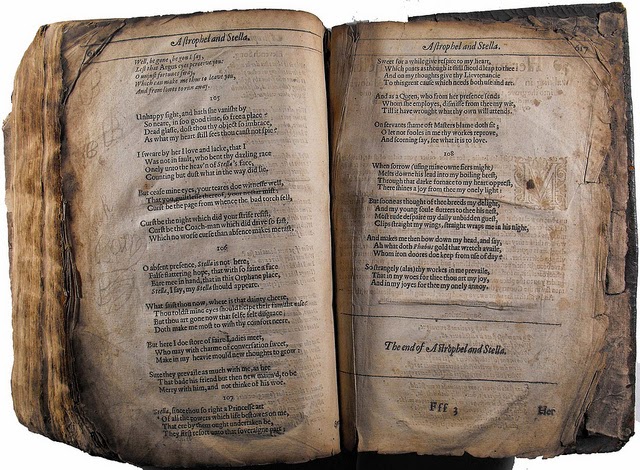 Astrophel and Stella.
Well, be gone, be gon I say,
Lest that Argus eyes perceive you:
O unjust fortunes sway,
Which can make me thus to leave you,
And from louts to run away.
105
Unhappy sight, and hath she vanisht by
So neare, in so good time, so free a place?
Dead glasse, dost thou thy object so imbrace,
As what my hart still sees thou canst not spie?
I sweare by her I love and lacke, that I
Was not in fault, who bent thy dazling race
Onely unto the heav'n of Stella's face,
Counting but dust what in the way did lie.
But cease mine eyes, your teares doe witnesse well,
That you guiltlesse thereof, your nectar mist:
Curst be the page from whence the bad torch fell,
Curst be the night which did your strife resist,
Curst be the Coach-man which did drive so fast,
With no worse curse than absence makes me tast.
106
O absent presence, Stella is not here;
False flattering hope, that with so faire a face
Bare mee in hand, that in this Orphane place,
Stella, I say, my Stella should appeare.
What saist thou now, where is that dainty cheere,
Thou toldst mine eyes should helpe their famisht case?
But thou art gone now that selfe felt disgrace,
Doth make me most to wish thy comfort neere.
But here I doe store of faire Ladies meet,
Who may with charme of conversation sweet,
Make in my heavie mould new thoughts to grow:
Sure they prevaile as much with me, as hee
That bade his friend but then new maim'd, to be
Merry with him, and not thinke of his woe.
107
Stella, since thou so right a Princesse art
Of all the powers which life bestowes on me,
That ere by them ought undertaken be,
They first resort unto that soveraigne part;
Astrophel and Stella. 617
Sweet for a while give respite to my heart,
Which pants as though it still should leap to thee:
And on my thoughts give thy Lievtenancie
To this great cause which needs both use and art.
And as a Queen, who from her presence sends
Whom she employes, dismisse from thee my wit,
Till it have wrought what thy own will attends.
On servants shame oft Masters blame doth sit;
O let not fooles in me thy workes reprove,
And scorning say, see what it is to love.
108
When sorrow (using mine owne fiers might)
Melts downe his lead into my boiling brest,
Through that darke fornace to my heart opprest,
There shines a joy from thee my onely light:
But soone as thought of thee breeds my delight,
And my young soule flutters to thee his nest,
Most rude despaire my daily unbidden guest,
Clips straight my wings, straight wraps me in his night,
And makes me then bow down my head, and say,
Ah what doth Phœbus gold that wretch availe,
Whom iron doores doe keep from use of day?
So strangely (alas) thy workes in me prevaile,
That in my woes for thee thou art my joy,
And in my joyes for thee my onely annoy.
The end of Astrophel and Stella.
Fff 3
Her